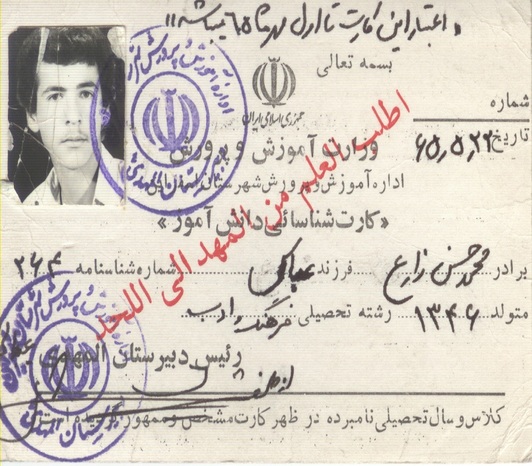 «اعتبار این کارت تا اول مهرماه ۶۵ میباشد»
بسمه تعالی
جمهوری اسلامی ایران
شماره
تاریخ ۶۵٫۵٫۲۲
وزارت آموزش و پرورش
اداره آموزش و پرورش شهرستان
«کارت شناسائی دانش آموز»
برادر محمد حسن زارع فرزند عباس شماره شناسنامه ۲۶۴
متولد ۱۳۴۶ رشته تحصیلی فرهنگ و ادب
رئیس دبیرستان المهدی
کلاس و سال تحصیلی نامبرده در ظهر کارت مشخص و ممهور گردیده است
اطلب العلم من المهد الی اللحد